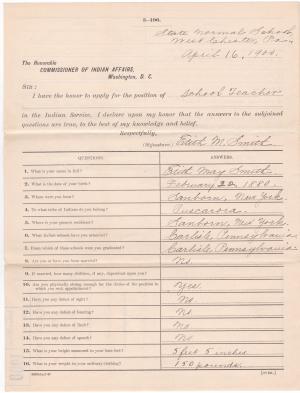 5-196.
State Normal School,
West Chester, Penn
April 16, 1904.
The Honorable
COMMISSIONER OF INDIAN AFFAIRS,
Washington, D. C.
SIR:
I have the honor to apply for the position of School Teacher
in the Indian Service. I declare upon my honor that the answers to the subjoined
questions are true, to the best of my knowledge and belief.
Respectfully,
(Signature) Edith M. Smith
QUESTIONS. ANSWERS.
1. What is your name in full? Edith May Smith.
2. What is the date of your birth? February 22, 1880.
3. Where were you born? Sanborn, New York.
4. To what tribe of Indians do you belong? Tuscarora.
5. Where is your present residence? Sanborn, New York.
6. What Indian schools have you attended? Carlisle, Pennsylvania
7. From which of these schools were you graduated? Carlisle, Pennsylvania.
8. Are you or have you been married? No.
9. If married, how many children, if any, dependent upon you?
10. Are you physically strong enough for the duties of the position to
which you seek appointment? Yes.
11. Have you any defect of sight? No
12. Have you any defect of hearing? No
13. Have you any defect of limb? No
14. Have you any defect of speech? No
15. What is your height measured in your bare feet? 5 feet 5 inches
16. What is your weight in your ordinary clothing? 150 pounds.